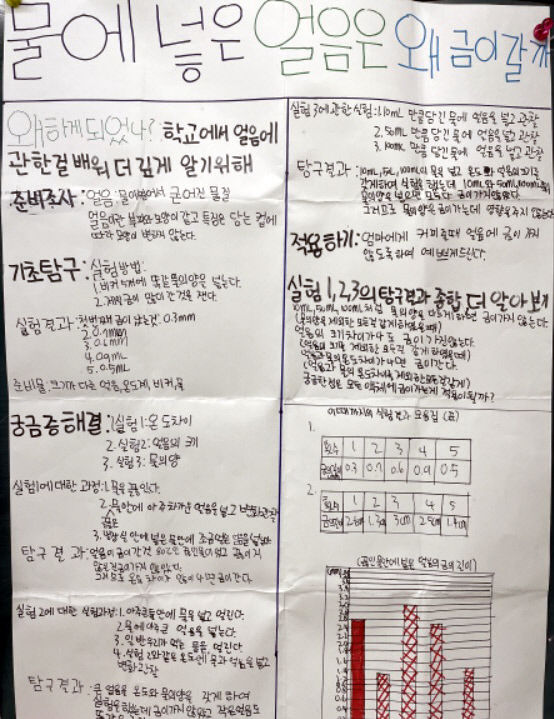 물에 넣은 얼음은 왜 금이갈까
왜하게되었나? 학교에서 얼음에
관한걸 배워 더 깊게 알기위해
준비조사: 얼음: 물이 얼어서 굳어진 물질
얼음이란 부피와 모양이 같고 특징은 담는 컵에
따라 모양이 변하지 않는다.
기초탐구: 실험방법:
1. 비커 5개에 똑같 물의양은 넣는다.
2. 제일 금이 많이 간것을 잰다.
실험결과: 첫번째 금이 갔는것: 0.3mm
2. 0.7mm
3. 0.6mm
4. 0.9mm
5. 0.5mm
준비물: 크기가 다른 얼음, 온도계, 비커, 물
궁금증해결: 1. 실험1: 온도차이
2. 실험2: 얼음의 크기
3. 실험3: 물의양
실험1에대한 과정: 1. 물을 끓인다.
2. 물안에 아주차가운 얼음을 넣고 변화관찰
끓은
탐구결과: 얼음이 금이간것
그래므로 온도 차이가 많이나면 금이간다.
실험2에 대한 실험과정: 1. 아주큰통안에 물을 넣고 얼린다.
2. 물에 아주큰 얼음을 넣는다.
4. 실험 2와같은 온도에 물과 얼음을 넣고
변화관찰
탐구결과: 큰 얼음을 온도와 물의양을 같게 하여
실험을 하는데 금이가지 않았고 작은얼음도
실험3에관한실험: 1. 10mL 만큼담긴 물에 얼음을 넣고 관찰
2. 50mL 만큼 담긴 물에 얼음을넣고 관찰
3. 100mL 만큼 담긴 물에 얼음을 넣고 관찰
탐구결과: 10mL, 50mL, 100mL의 물을 넣고 온도와 얼음의크기를
같게하여 실험을 했는데 10mL와 50mL, 100mL
물의양을 넣으면 모두다 금이가지않았다.
그러므로 물의양은 금이가는데 영향을주지 않는다.
적용하기: 엄마에게 커피줄때 얼음에 금이 가지
않도록하여 예쁘게드린다.
실험 1,2,3의탐구결과 종합 더 알아보기
10mL, 50mL, 100mL처럼 물의양을 다르게하면 금이가지 않는다.
(물의양을 제외한 모든걸 같게하였을때)
얼음의 크기차이가나도 금이 가진않는다.
(얼음의 크기를 제외한 모든걸 같게 하였을때)
얼음과 물의온도차이가나면 금이간다.
(얼음과 물의 온도차이를 제외한모든걸같게)
이때까지의 실험결과 모음집 (표)
1.
횟수 1 2 3 4 5
금의길이 0.3 0.7 0.6 0.9 0.5
2.
횟수 1 2 3 4 5
금의길이 2.6cm 1.3cm 3cm 2.5cm 1.4cm
(끓인물안에 넣은 얼음의 금의 길이)